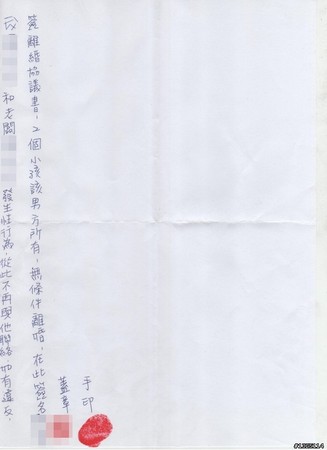 我 和老闆 發生性行為,從此不再與他聯絡如有違反,
簽離婚協議書,2個小孩該男方所有,無條件離婚,在此簽名
蓋章
手印